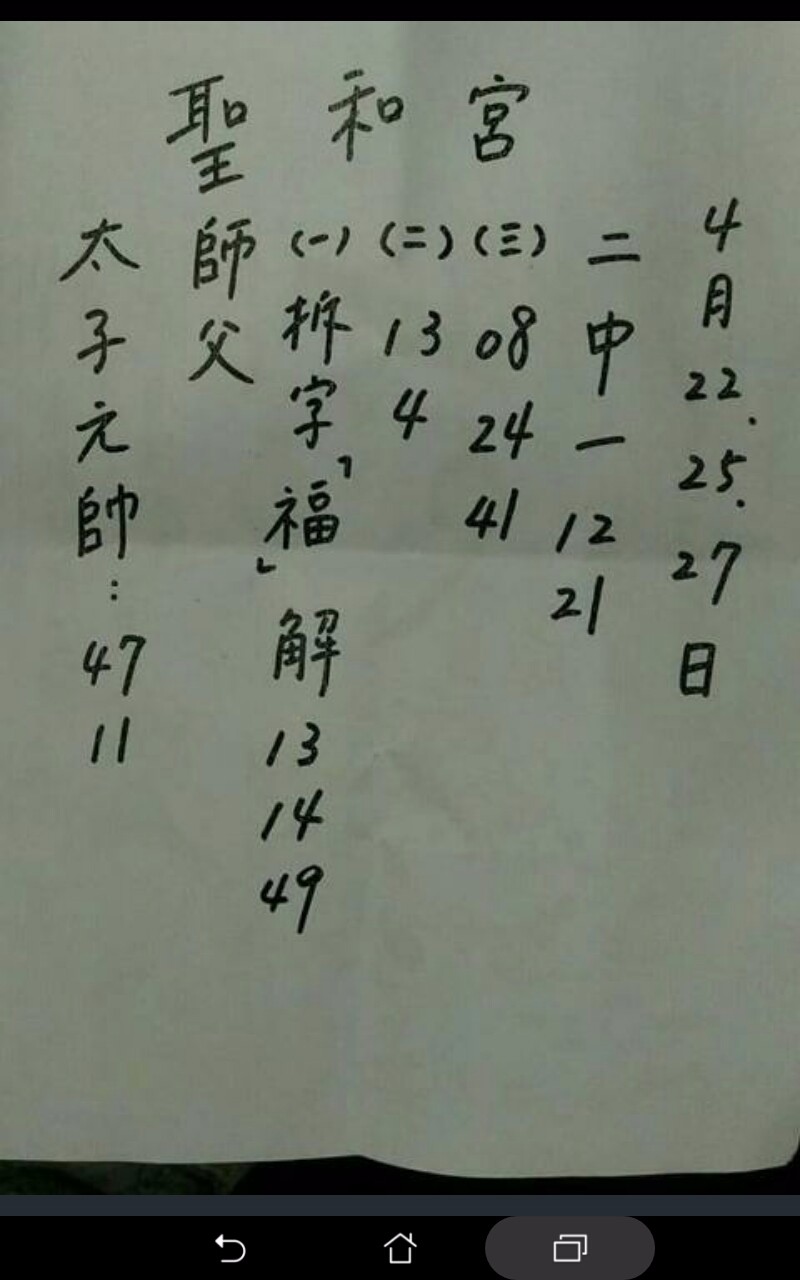 聖和宮
太子元帥：47 11
師父
(一)拆字「福」解 13 14 49
(二) 13 4
(三) 08 24 41
二中一 12 21
4月22.25.27日